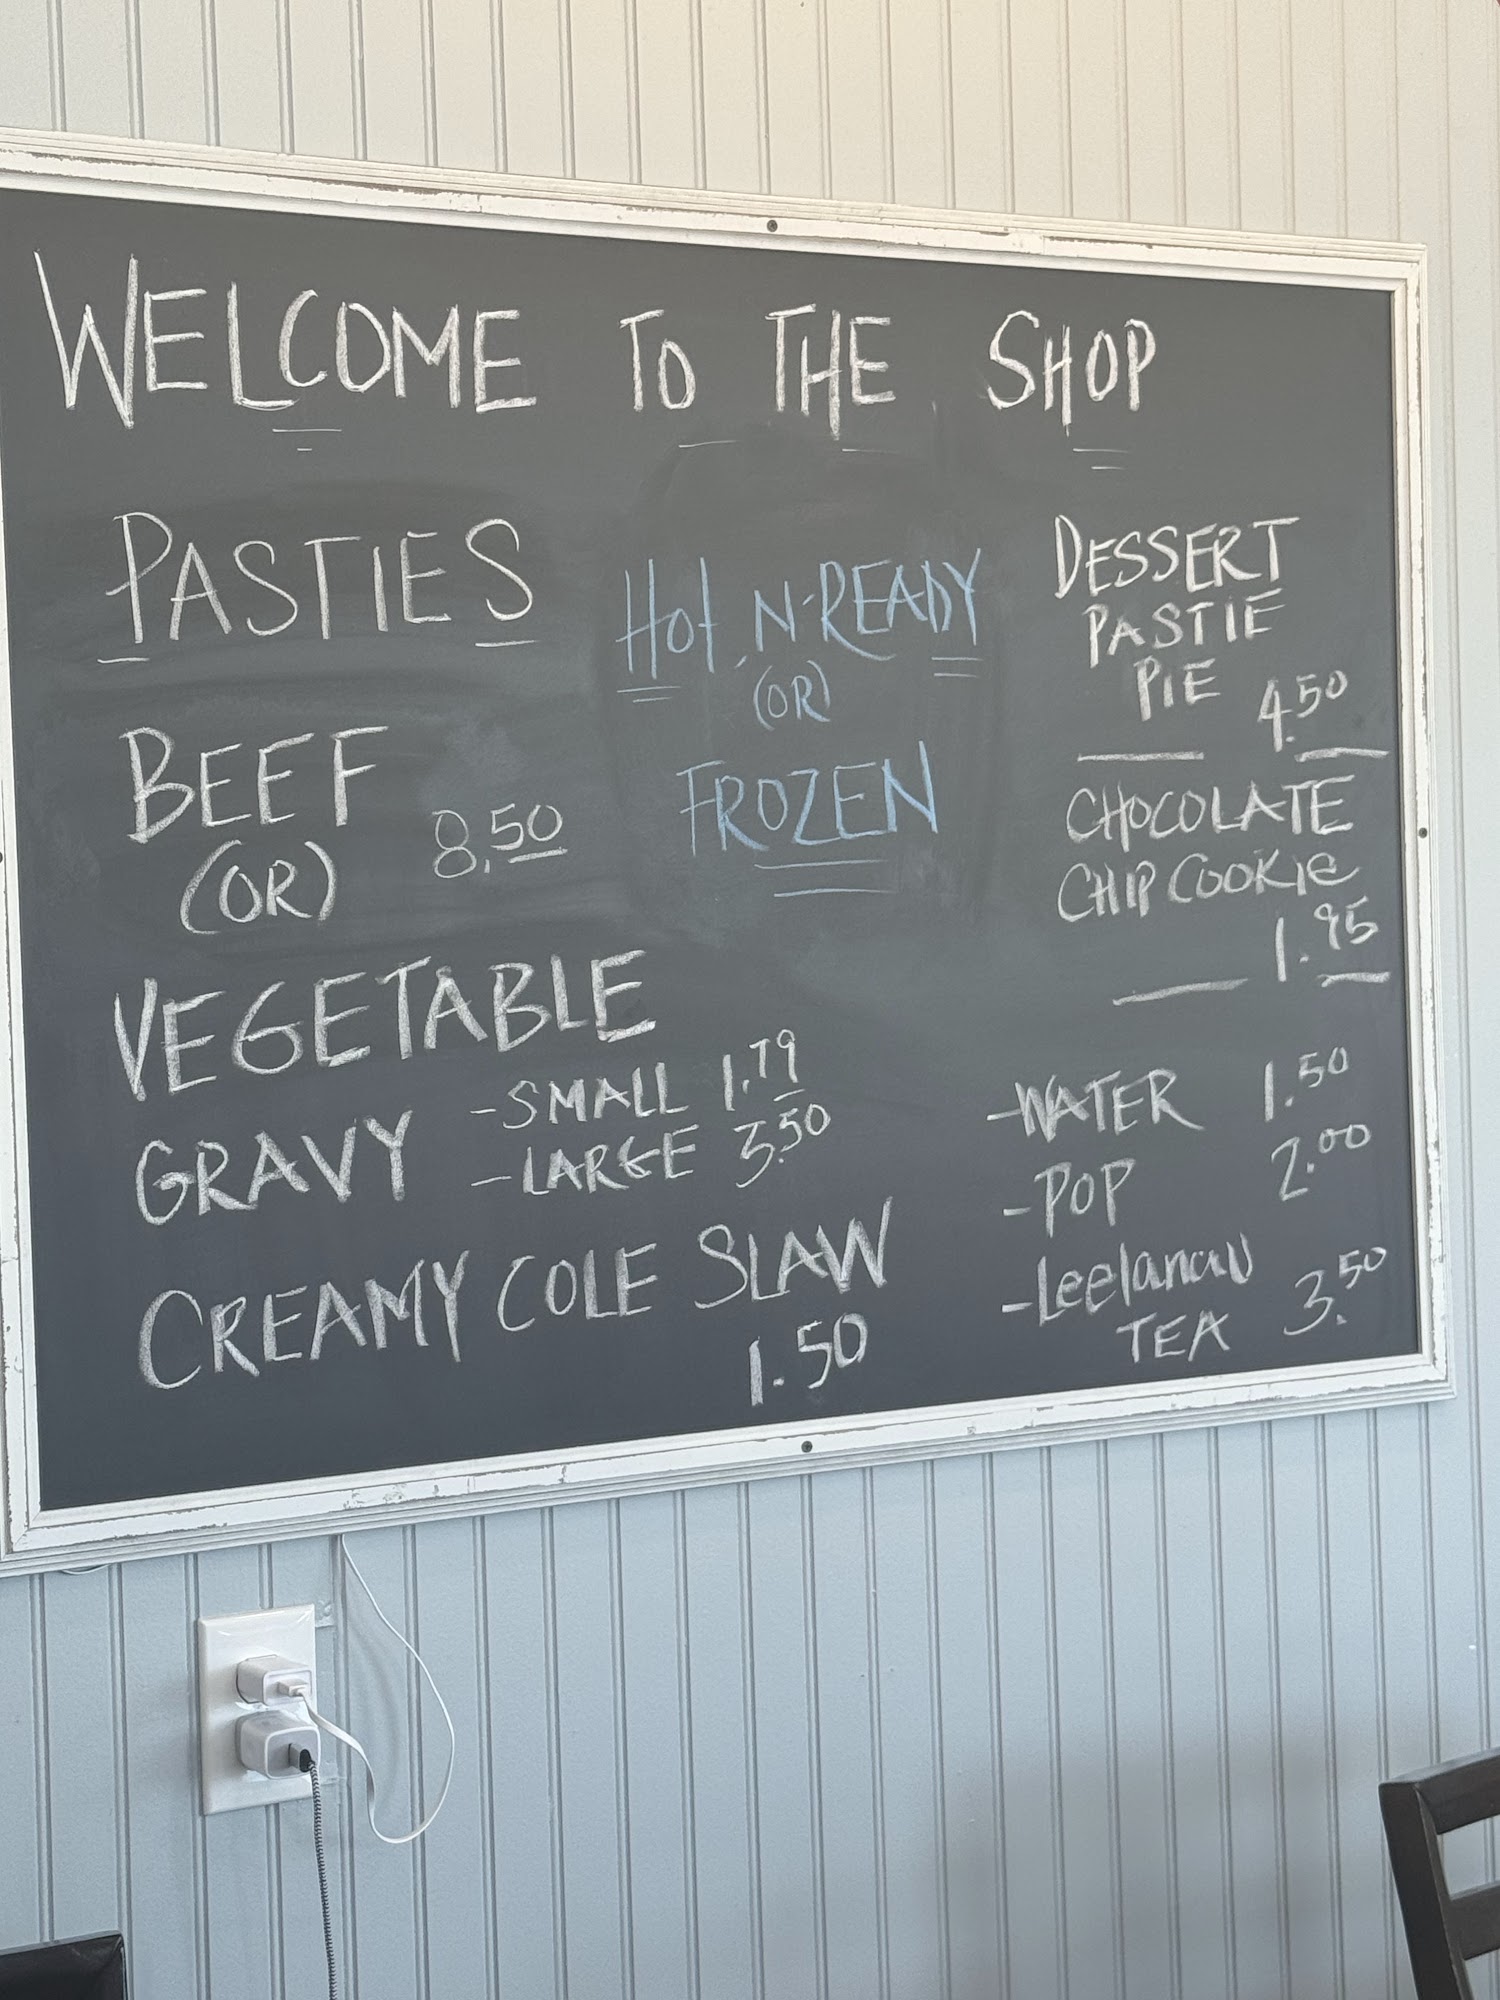 WELCOME TO THE SHOP
PASTIES
BEEF
(OR) 8.50
VEGETABLE
GRAVY -SMALL 1.79
-LARGE 3.50
CREAMY COLE SLAW
1.50
Hot, N-READY
(OR)
FROZEN
DESSERT
PASTIE
PIE 4.50
CHOCOLATE
CHIP COOKIE
1.95
-WATER 1.50
-POP 2.00
-Leelanau
TEA 3.50